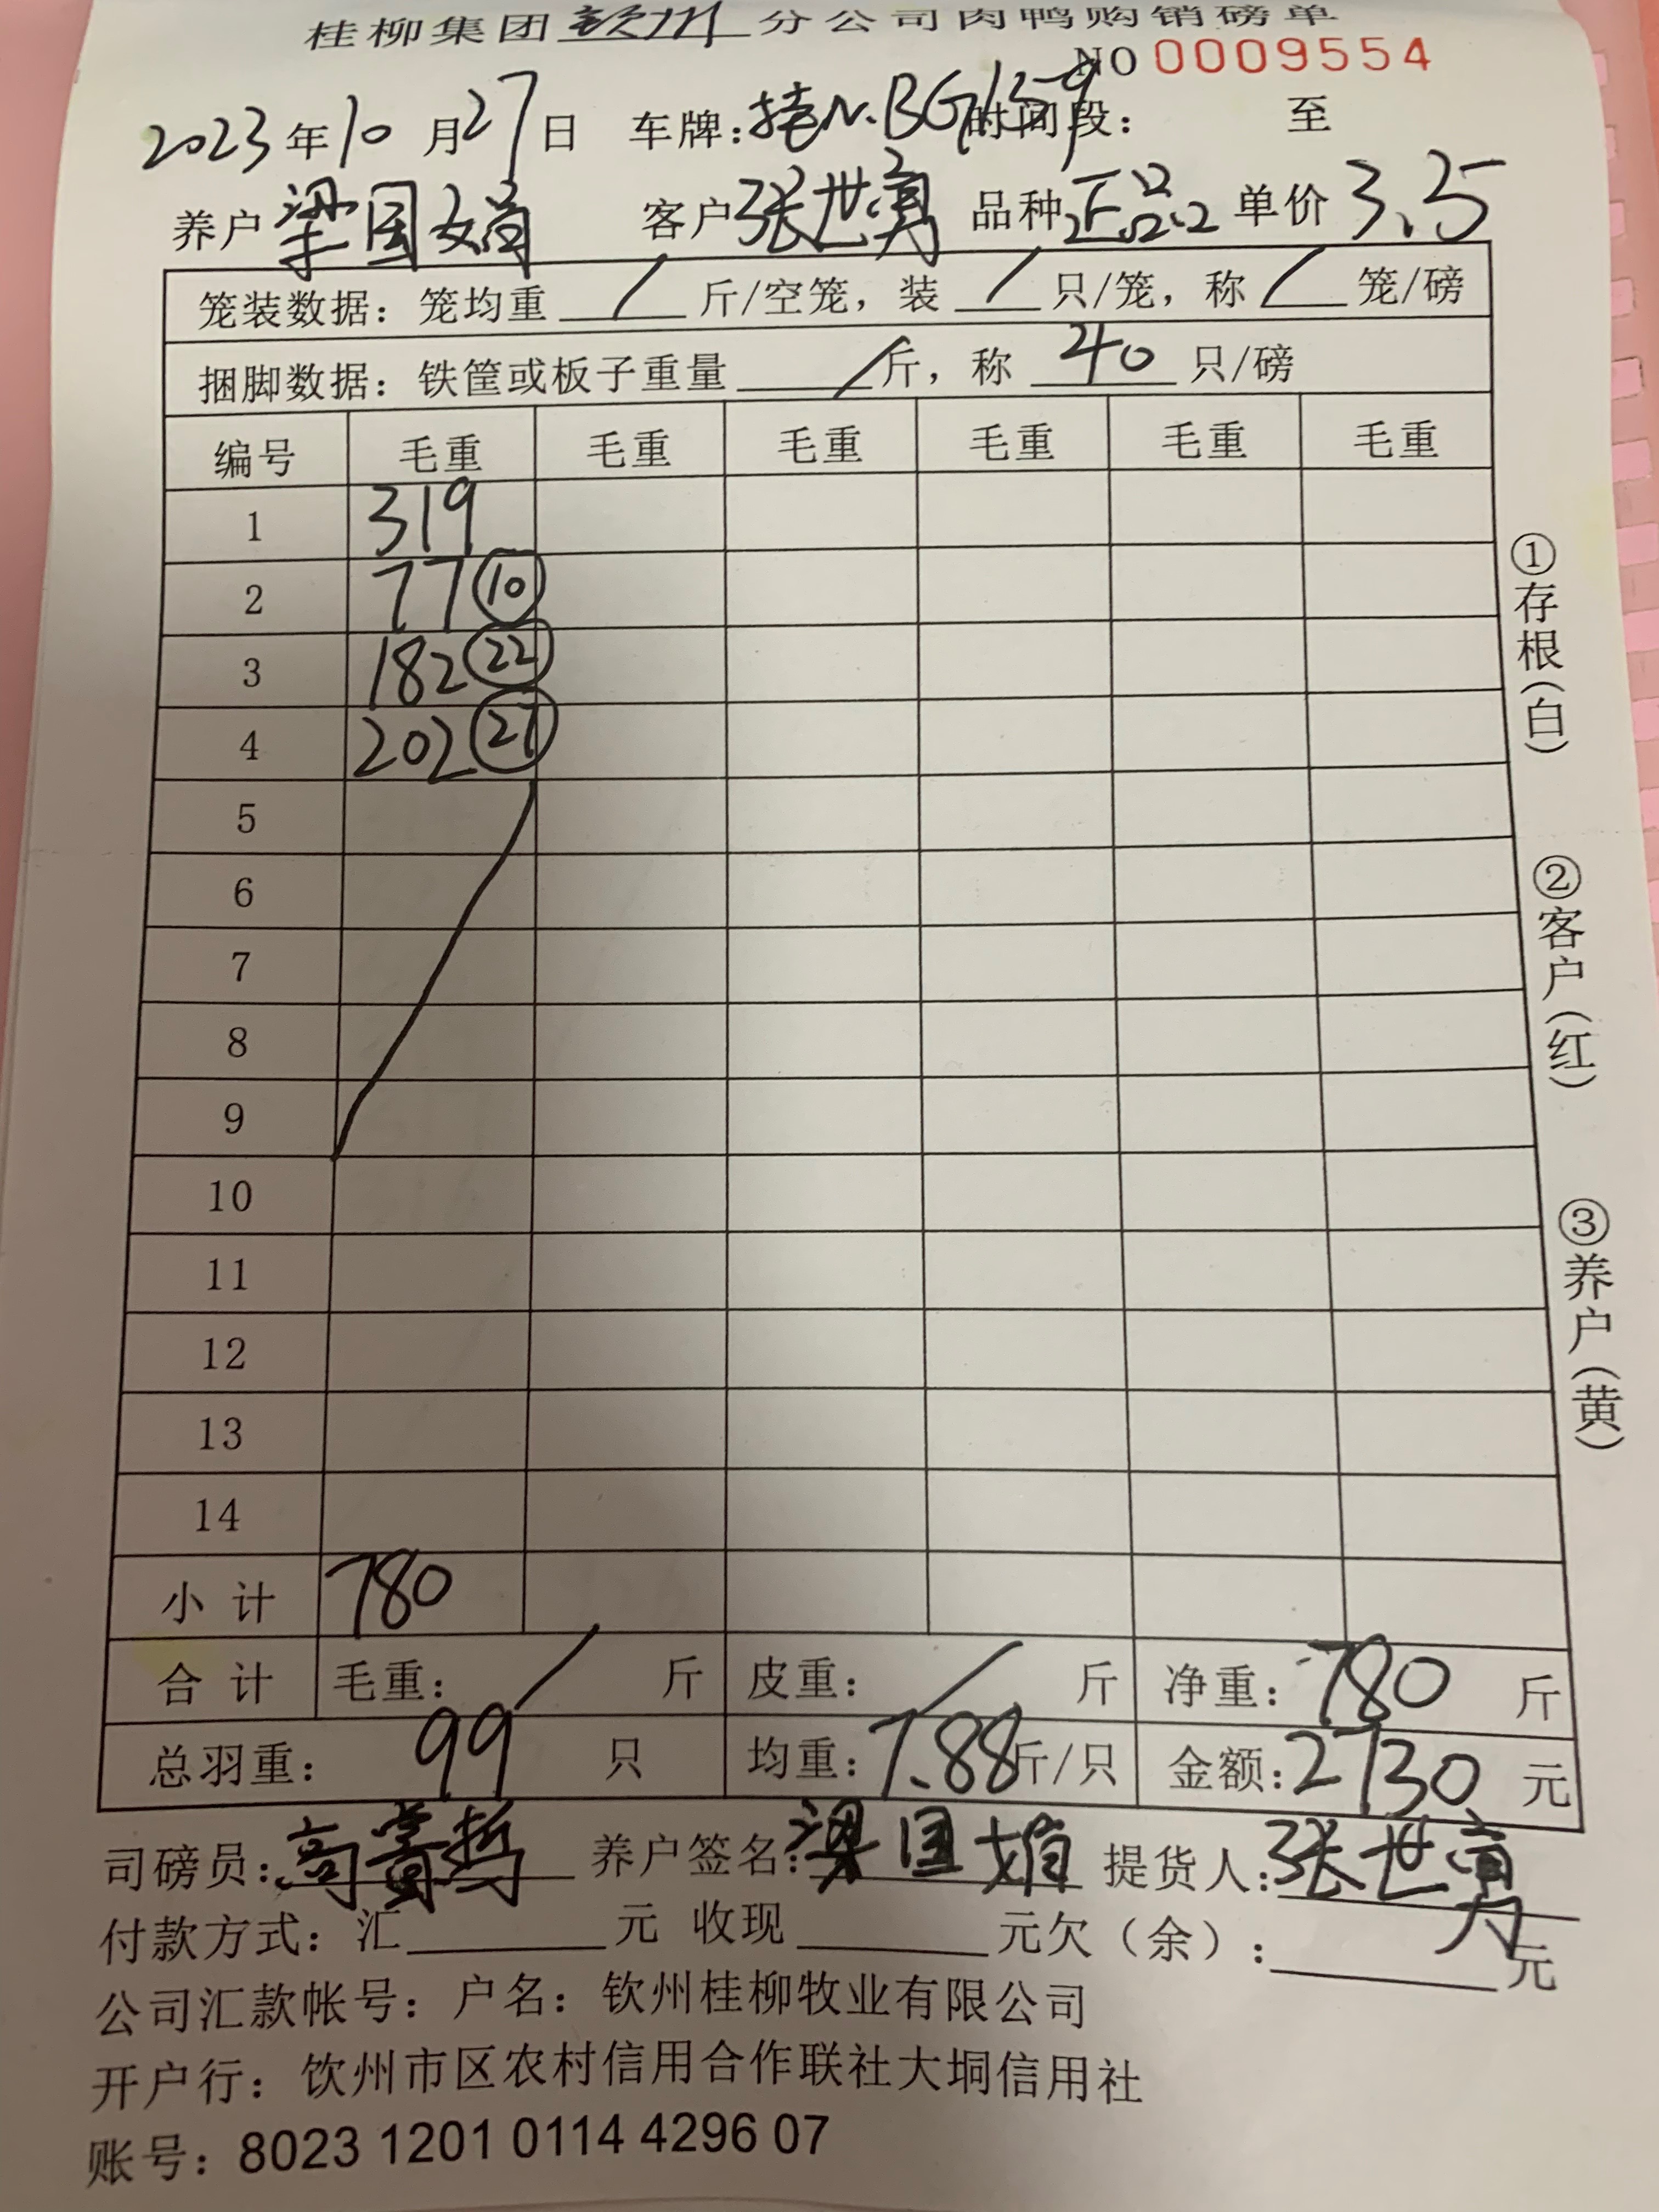 桂柳集团钦州分公司肉鸭购销磅单
NO 0009554
2023年10月27日 车牌:桂N.BG159 时间段: 至
养户梁国娟 客户张世勇 品种正品2 单价3.5
笼装数据: 笼均重 / 斤/空笼, 装 / 只/笼, 称 / 笼/磅
捆脚数据: 铁筐或板子重量 / 斤, 称 40 只/磅
编号 毛重 毛重 毛重 毛重 毛重 毛重
1 319
2 77 ⑩
3 182 ㉒
4 202 ㉗
5
6
7
8
9
10
11
12
13
14
小计 780
合计 毛重: / 斤 皮重: / 斤 净重: 780 斤
总羽重: 99 只 均重: 7.88斤/只 金额: 2730 元
司磅员: 高 哲 养户签名: 梁国娟 提货人: 张世勇
付款方式: 汇 元 收现 元欠(余): 元
公司汇款帐号: 户名: 钦州桂柳牧业有限公司
开户行: 钦州市区农村信用合作联社大垌信用社
账号: 8023 1201 0114 4296 07
①存根(白)
②客户(红)
③养户(黄)